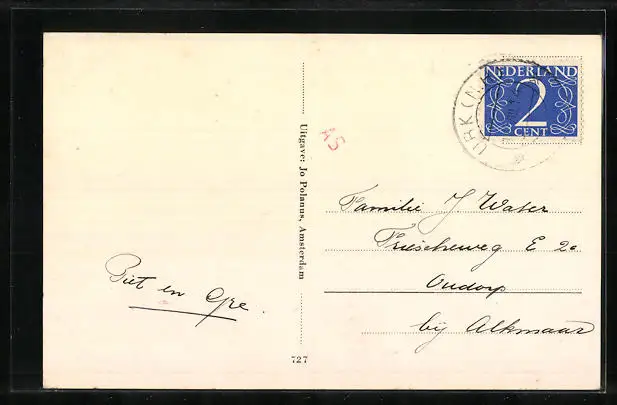 Piet en Gre.
Uitgave: Jo Polanus, Amsterdam
727
A5
URK (N.H
NEDERLAND
2
CENT
Familie J Water
Friescheweg E 2c
Oudorp
bij Alkmaar